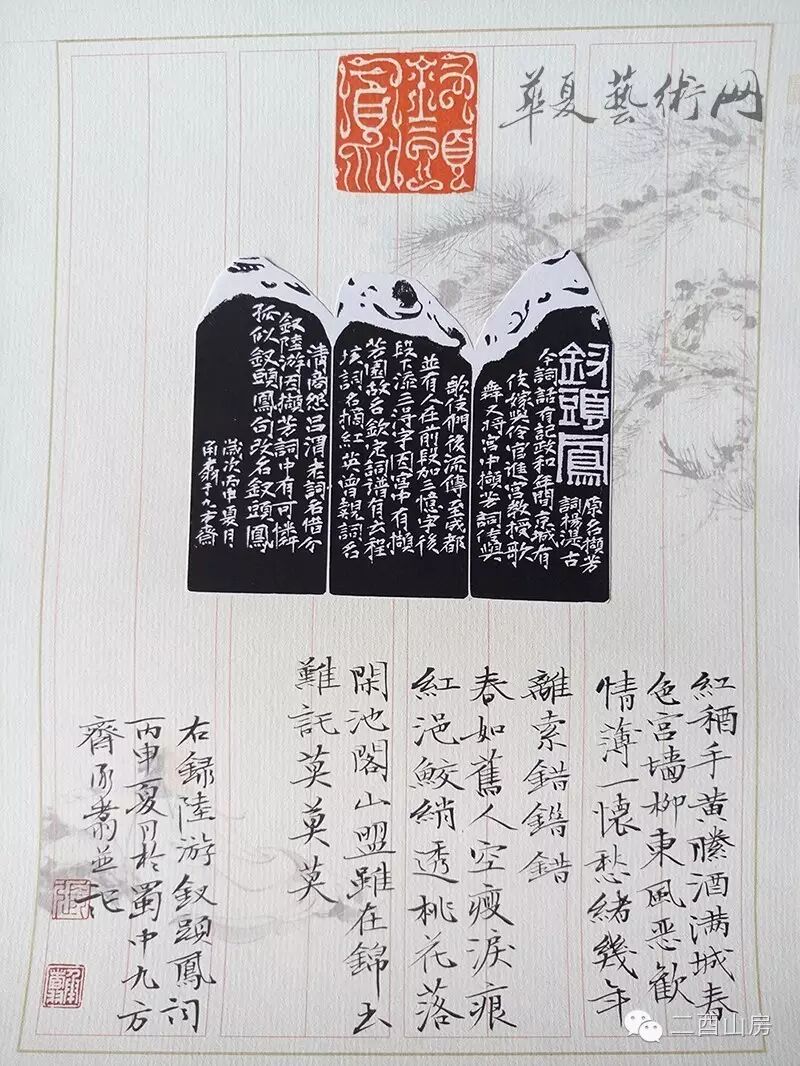 華夏藝術网
釵頭鳳
原名擷芳
詞楊湜古
今詞話有記政和年間京城有
伎嫁與伶官進宮教授歌
舞又将宮中擷芳詞傳與
歌伎們後流傳至成都
並有人在前段加三憶字後
段下添三得字因宮中有擷
芳園故名欽定詞譜有云程
垓詞名摘紅英曾覿詞名
清商怨呂渭老詞名惜分
釵陸游因擷芳詞中有可憐
孤似釵頭鳳句改名釵頭鳳
歲次丙申夏月
紅酥手黄縢酒满城春
色宮墙柳東風恶歡
情薄一懷愁緒幾年
離索錯錯錯
春如舊人空瘦淚痕
紅浥鮫綃透桃花落
閑池閣山盟雖在錦书
難託莫莫莫
右録陸游釵頭鳳詞
丙申夏月於蜀中九方
齋承翥並记
二酉山房